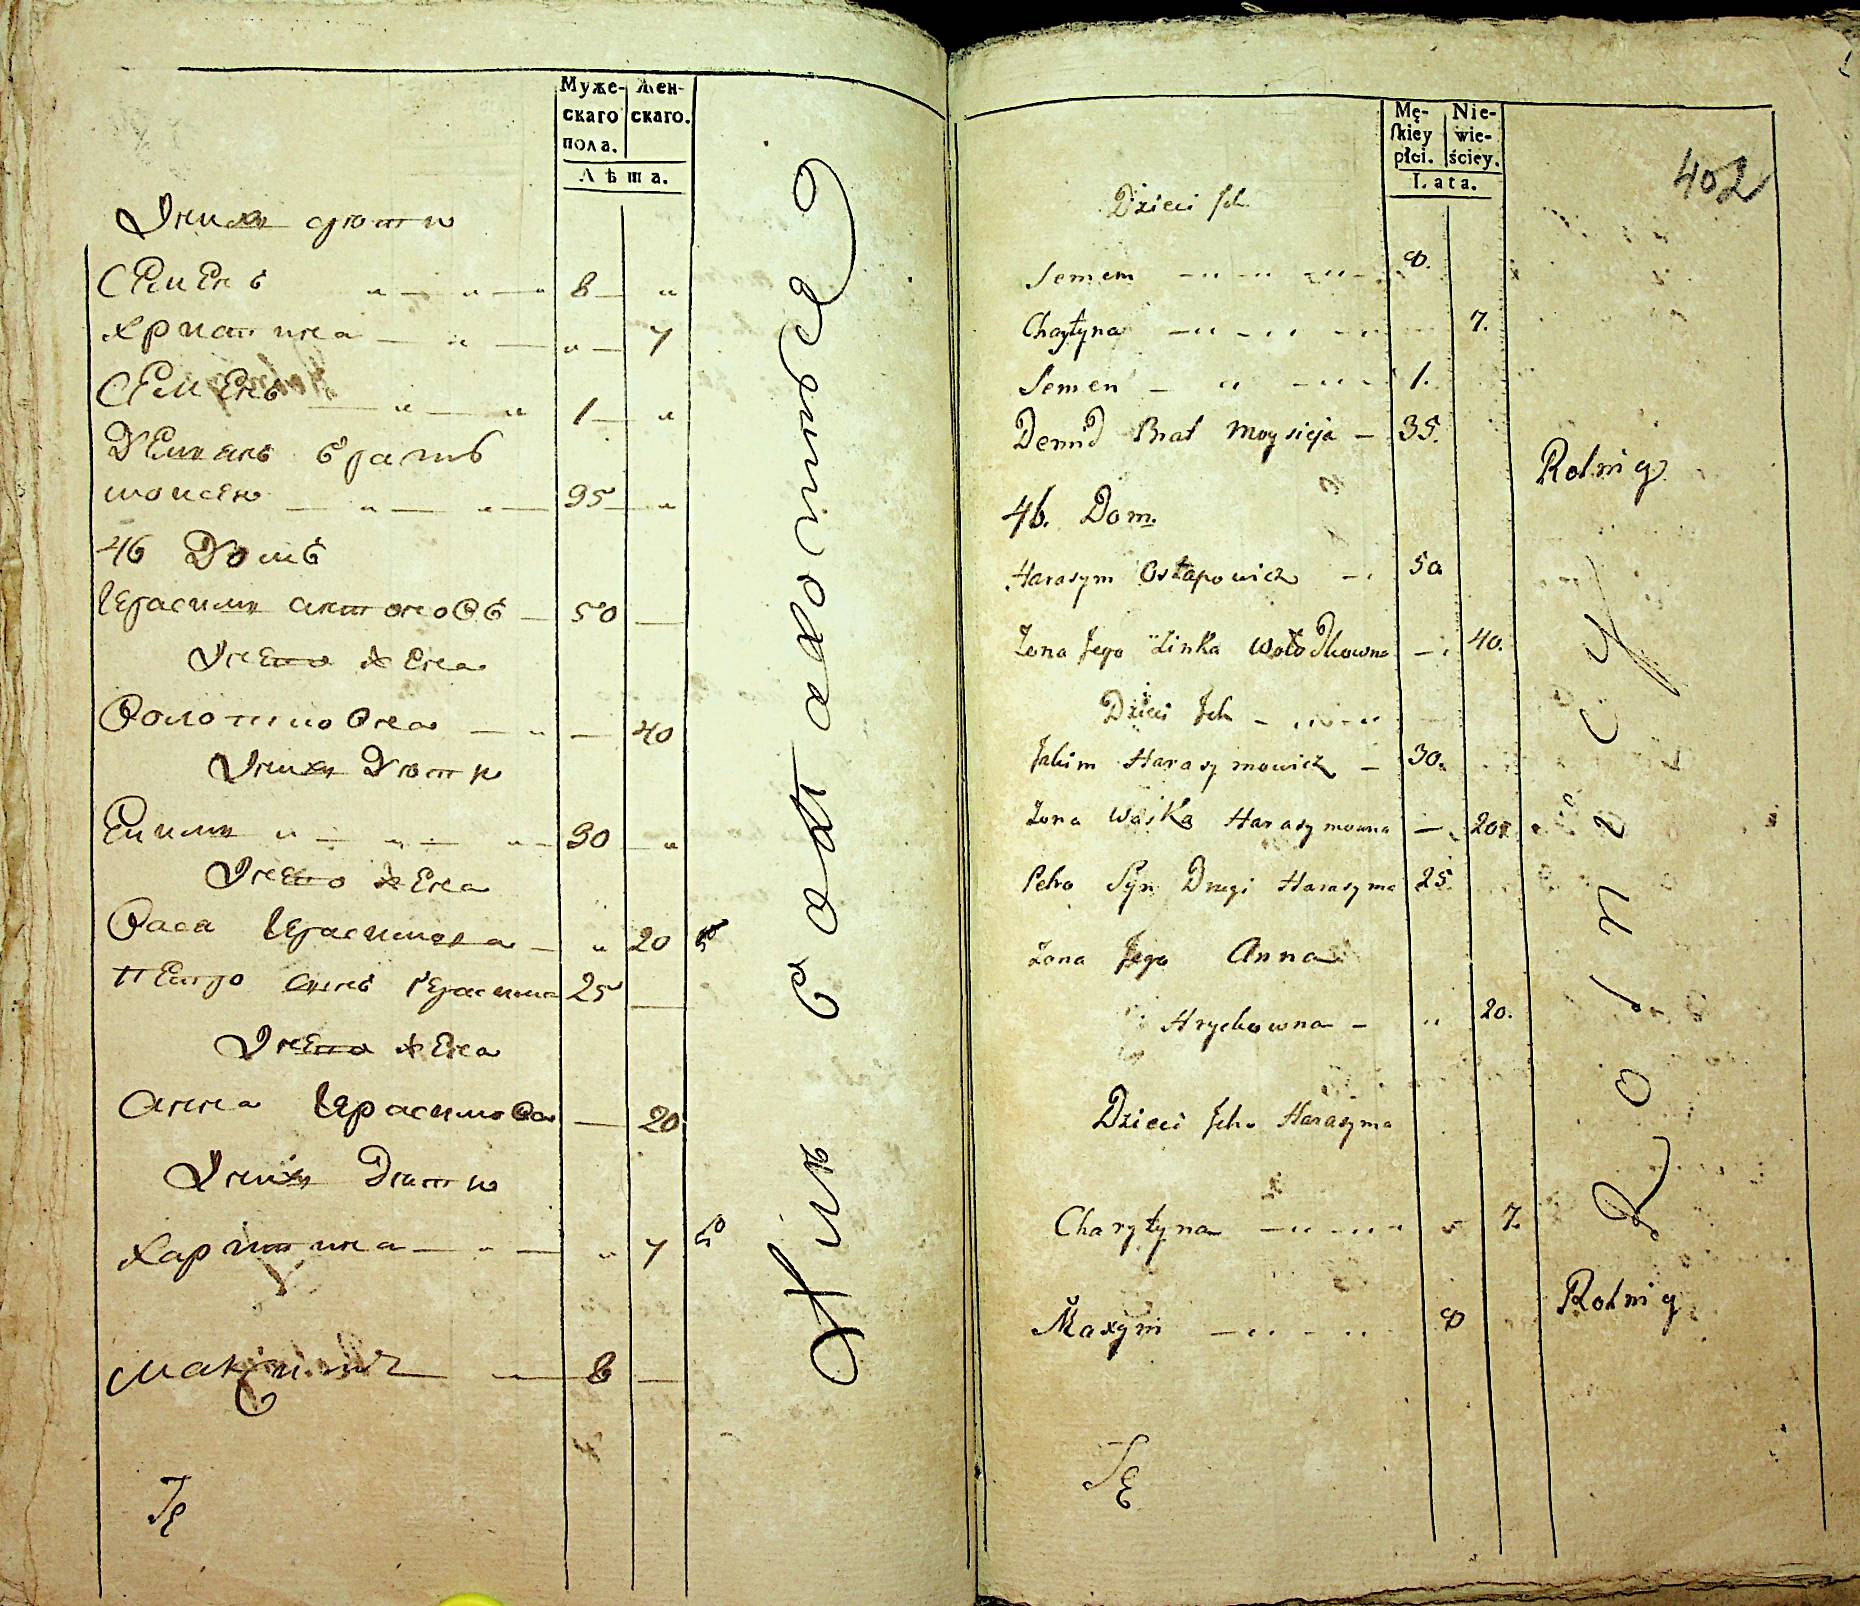 Муже-
скаго
пола.
Жен-
скаго.
Лѣта.
Унихъ дѣти
Семенъ 8
Христина 7
Семенъ 1
Демянъ братъ
моисея 35
46 Домъ
Герасимъ антоновъ 50
Унего жена
Володковна 40
Унихъ Дѣти
Екимъ 30
Унего жена
Васа Герасимова 20
Петро сынъ Герасима 25
Унего жена
анна Герасимова 20
Унихъ Дѣти
Харитина 7
Максимъ 8
Mę-
ſkiey
płci.
Nie-
wie-
ściey.
Lata.
402
Dzieci Ich
Semem 8.
Charytyna 7.
Semen 1.
Demid Brat Moysieja 35.
Rolnicy
46. Dom.
Harasym Ostapowicz 50
Zona Jego Zinka Wołodkowna 40.
Dzieci Ich
Jakim Harasymowicz 30.
Zona Waska Harasymowna 20
Petro Syn Drugi Harasyma 25.
Zona Jego Anna
Hryckowna 20.
Dzieci Ich Harasyma
Charytyna 7.
Maxym 8
Rolnicy
Rolnicy